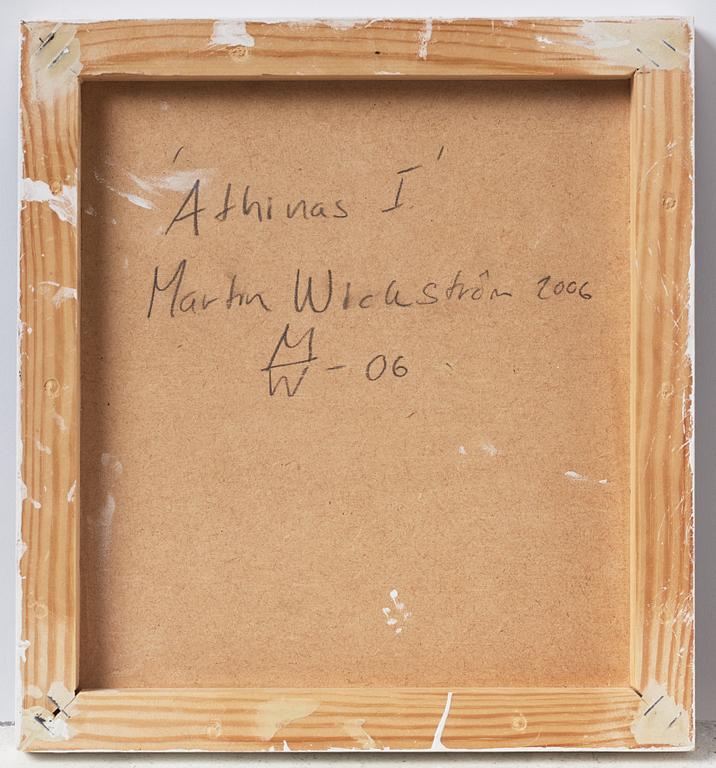 'Athinas I'
Martin Wickström 2006
M
W - 06